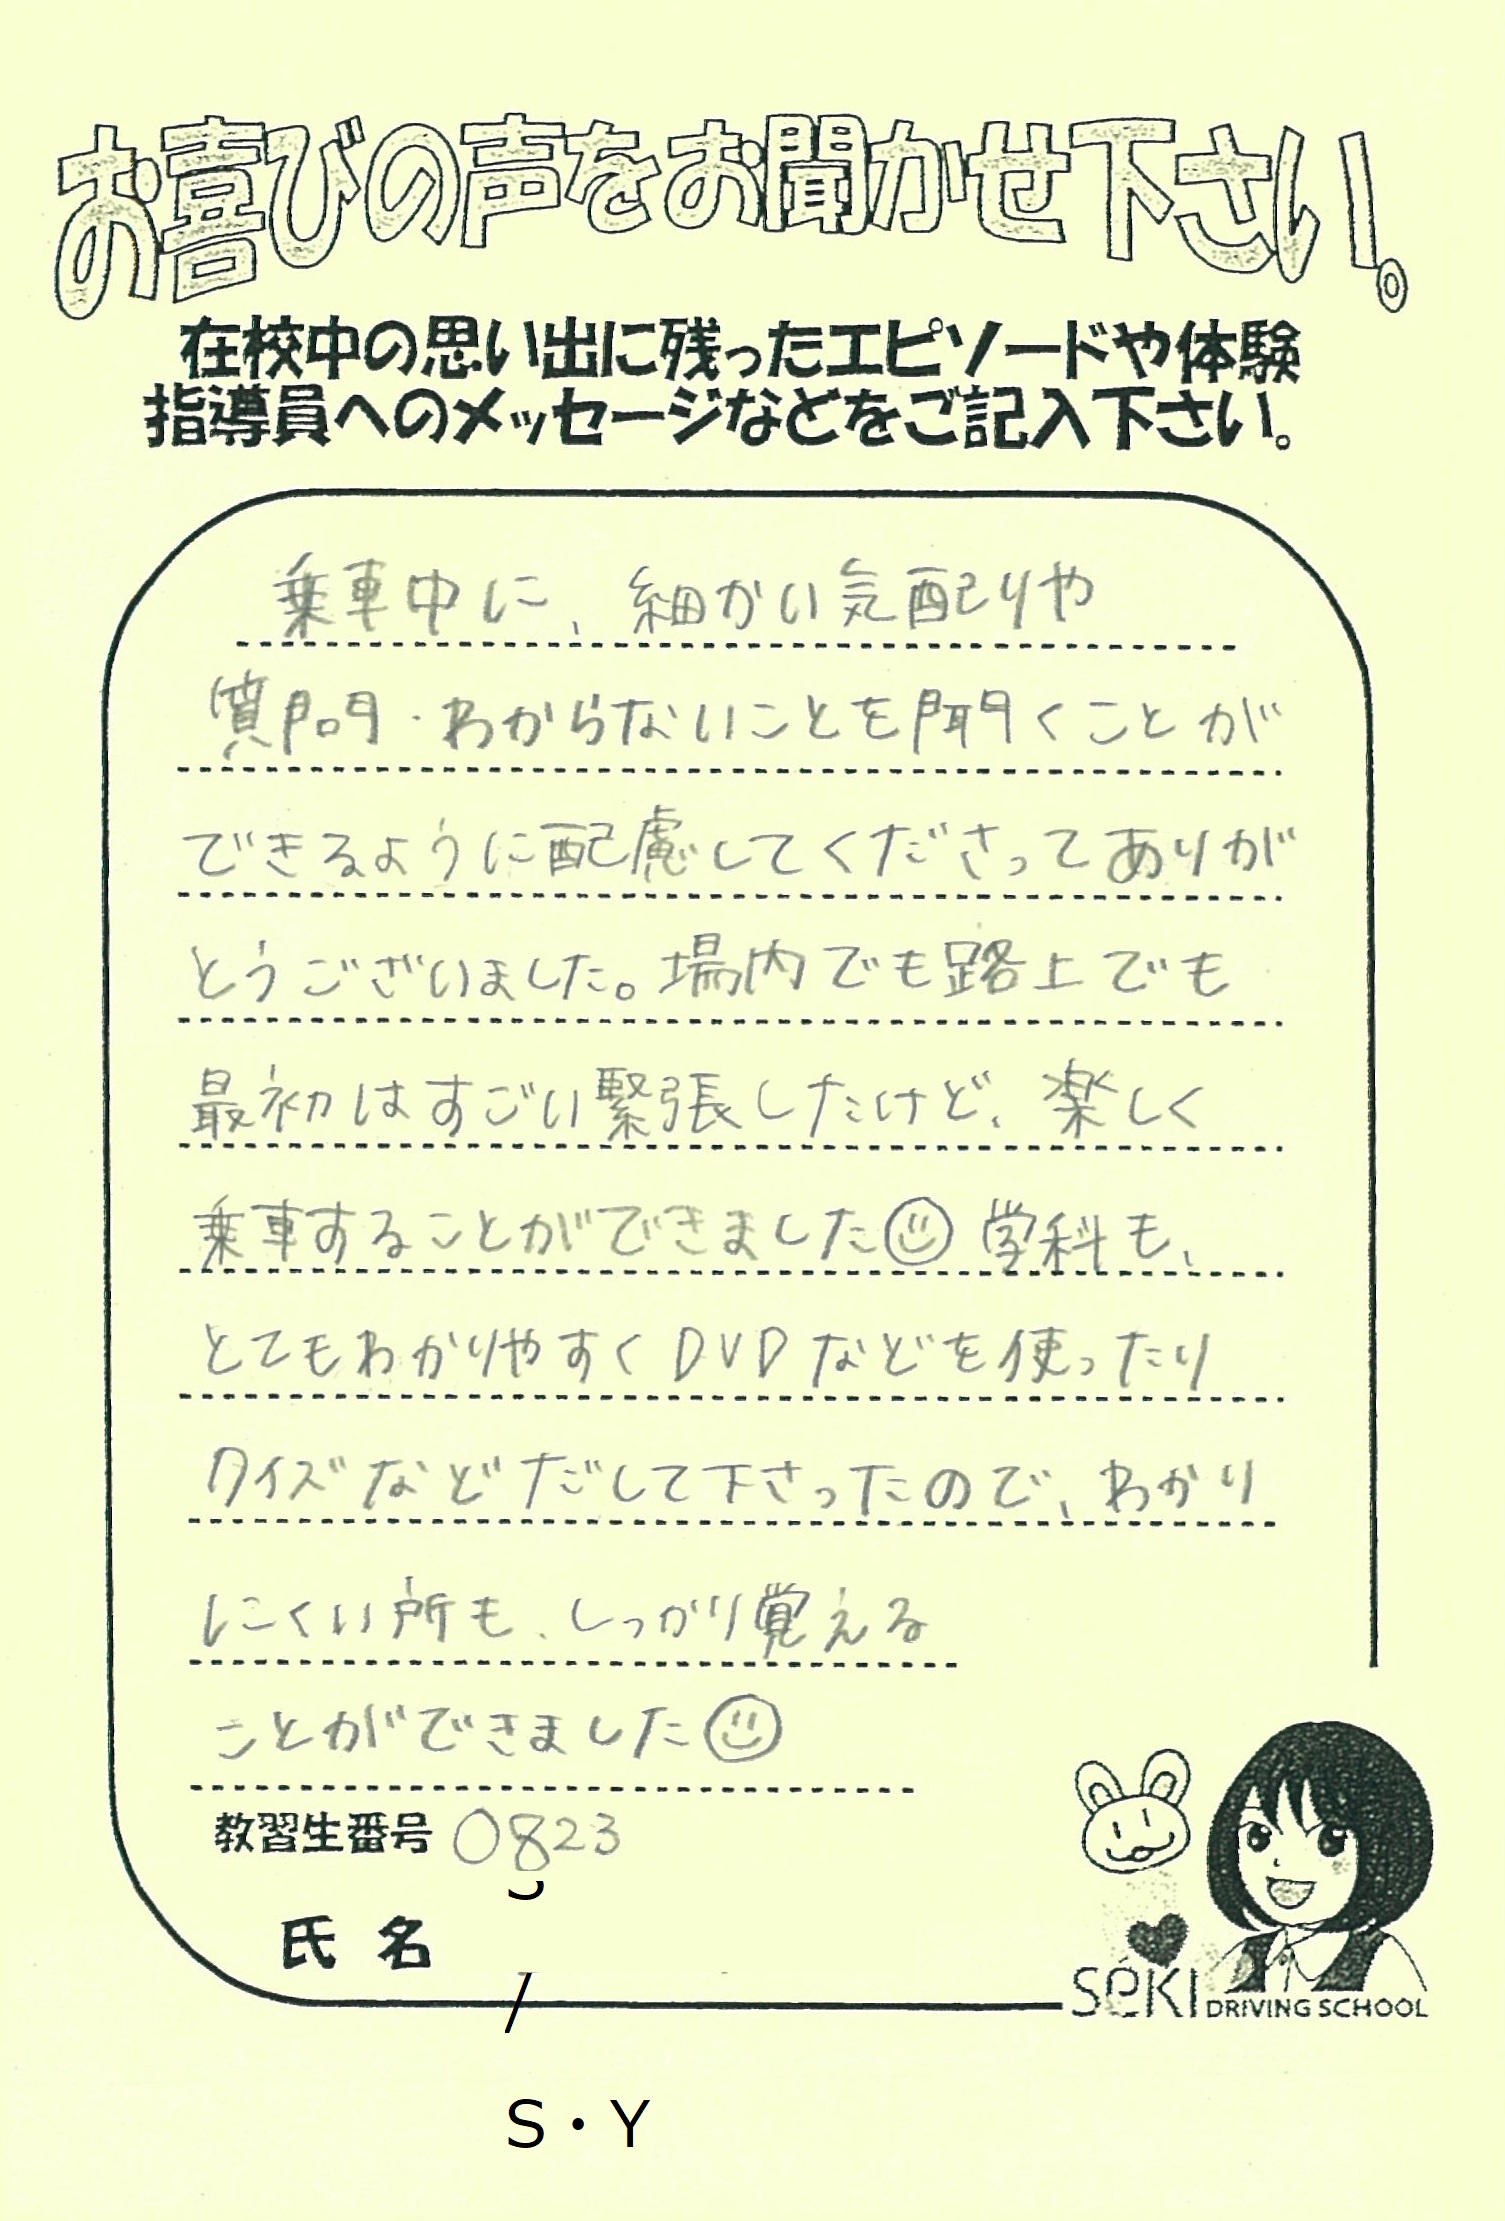 お喜びの声をお聞かせ下さい。
在校中の思い出に残ったエピソードや体験
指導員へのメッセージなどをご記入下さい。
乗車中に、細かい気配りや
質問・わからないことを聞くことが
できるように配慮してくださってありが
とうございました。場内でも路上でも
最初はすごい緊張したけど、楽しく
乗車することができました☺学科も、
とてもわかりやすくDVDなどを使ったり
クイズなどだして下さったので、わかり
にくい所も、しっかり覚える
ことができました☺
教習生番号 0823
氏名
/
SéKI DRIVING SCHOOL
S・Y